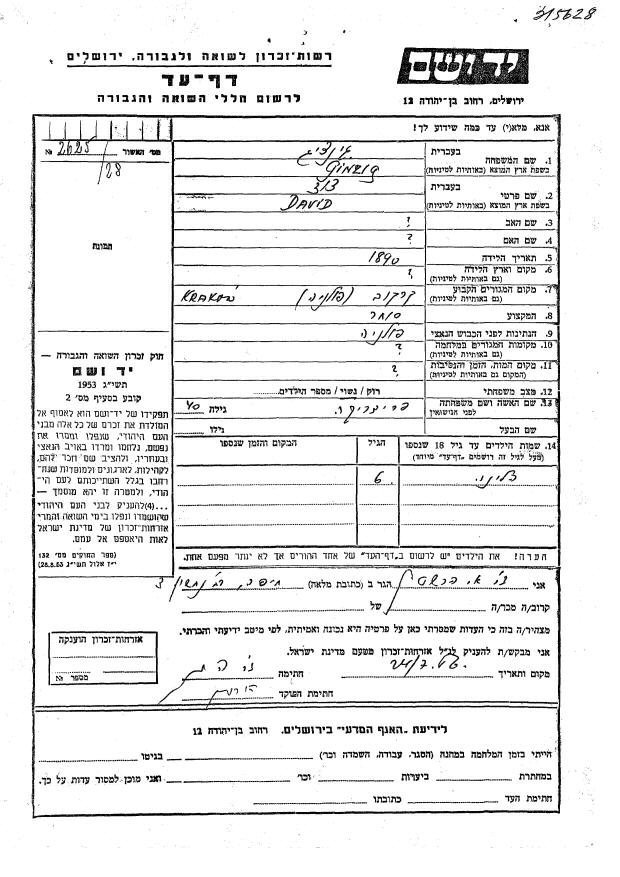 315628
רשות־זכרון לשואה ולגבורה, ירושלים
דף־עד
לרשום חללי השואה והגבורה
יד ושם
ירושלים, רחוב בן־יהודה 12
אנא, מלא(י) עד כמה שידוע לך!
מס' האשור
2625/28 №
תמונת
1. שם המשפחה
בעברית
בשפת ארץ המוצא (באותיות לטיניות)
2. שם פרטי
בעברית דוד
בשפת ארץ המוצא (באותיות לטיניות) DAVID
3. שם האב ?
4. שם האם ?
5. תאריך הלידה 1890
6. מקום וארץ הלידה ?
(גם באותיות לטיניות)
7. מקום המגורים הקבוע קרקוב (פולניה)
(גם באותיות לטיניות)
8. המקצוע סוחר
9. הנתינות לפני הכבוש הנאצי פולניה
10. מקומות המגורים במלחמה ?
(גם באותיות לטיניות)
11. מקום המות, הזמן והנסיבות ?
(המקום גם באותיות לטיניות)
12. מצב משפחתי רוק / נשוי / מספר הילדים
13. שם האשה ושם משפחתה
לפני הנישואין
גילה 40
שם הבעל גילו
14. שמות הילדים עד גיל 18 שנספו
(מעל לגיל זה רושמים "דף־עד" מיוחד)
הגיל
המקום והזמן שנספו
6
חוק זכרון השואה והגבורה —
יד ושם
תשי"ג 1953
קובע בסעיף מס' 2
תפקידו של יד־ושם הוא לאסוף אל
המולדת את זכרם של כל אלה מבני
העם היהודי, שנפלו ומסרו את
נפשם, נלחמו ומרדו באויב הנאצי
ובעוזריו, ולהציב שם וזכר להם,
לקהילות, לארגונים ולמוסדות שנח־
רבו בגלל השתייכותם לעם הי־
הודי, ולמטרה זו יהא מוסמך —
...(4) להעניק לבני העם היהודי
שהושמדו ונפלו בימי השואה והמרי
אזרחות־זכרון של מדינת ישראל
לאות היאספם אל עמם.
(ספר החוקים מס' 132
י"ז אלול תשי"ג 28.8.53)
הערה! את הילדים יש לרשום ב"דף־העד" של אחד ההורים אך לא יותר מפעם אחת.
אני
הגר ב (כתובת מלאה) חיפה,
קרוב/ה מכר/ה של
מצהיר/ה בזה כי העדות שמסרתי כאן על פרטיה היא נכונה ואמיתית, לפי מיטב ידיעתי והכרתי.
אני מבקש/ת להעניק לנ"ל אזרחות־זכרון מטעם מדינת ישראל.
מקום ותאריך חתימה
חתימת הפוקד
אזרחות־זכרון הוענקה
מספר №
לידיעת "האגף המדעי" בירושלים, רחוב בן־יהודה 12
הייתי בזמן המלחמה במחנה (הסגר, עבודה, השמדה וכו') בגיטו
במחתרת ביערות וכו' ואני מוכן למסור עדות על כך.
חתימת העד כתובתו